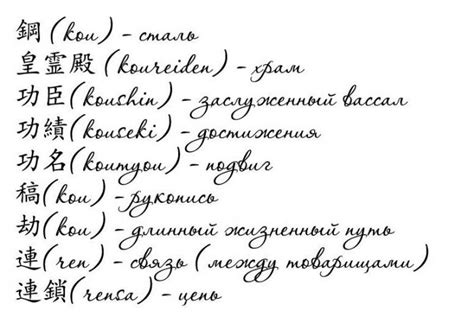 鋼(kou) – сталь
皇霊殿(koureiden) – храм
功臣(koushin) – заслуженный вассал
功績(kouseki) – достижения
功名(koumyou) – подвиг
稿(kou) – рукопись
劫(kou) – длинный жизненный путь
連(ren) – связь (между товарищами)
連鎖(rensa) – цепь